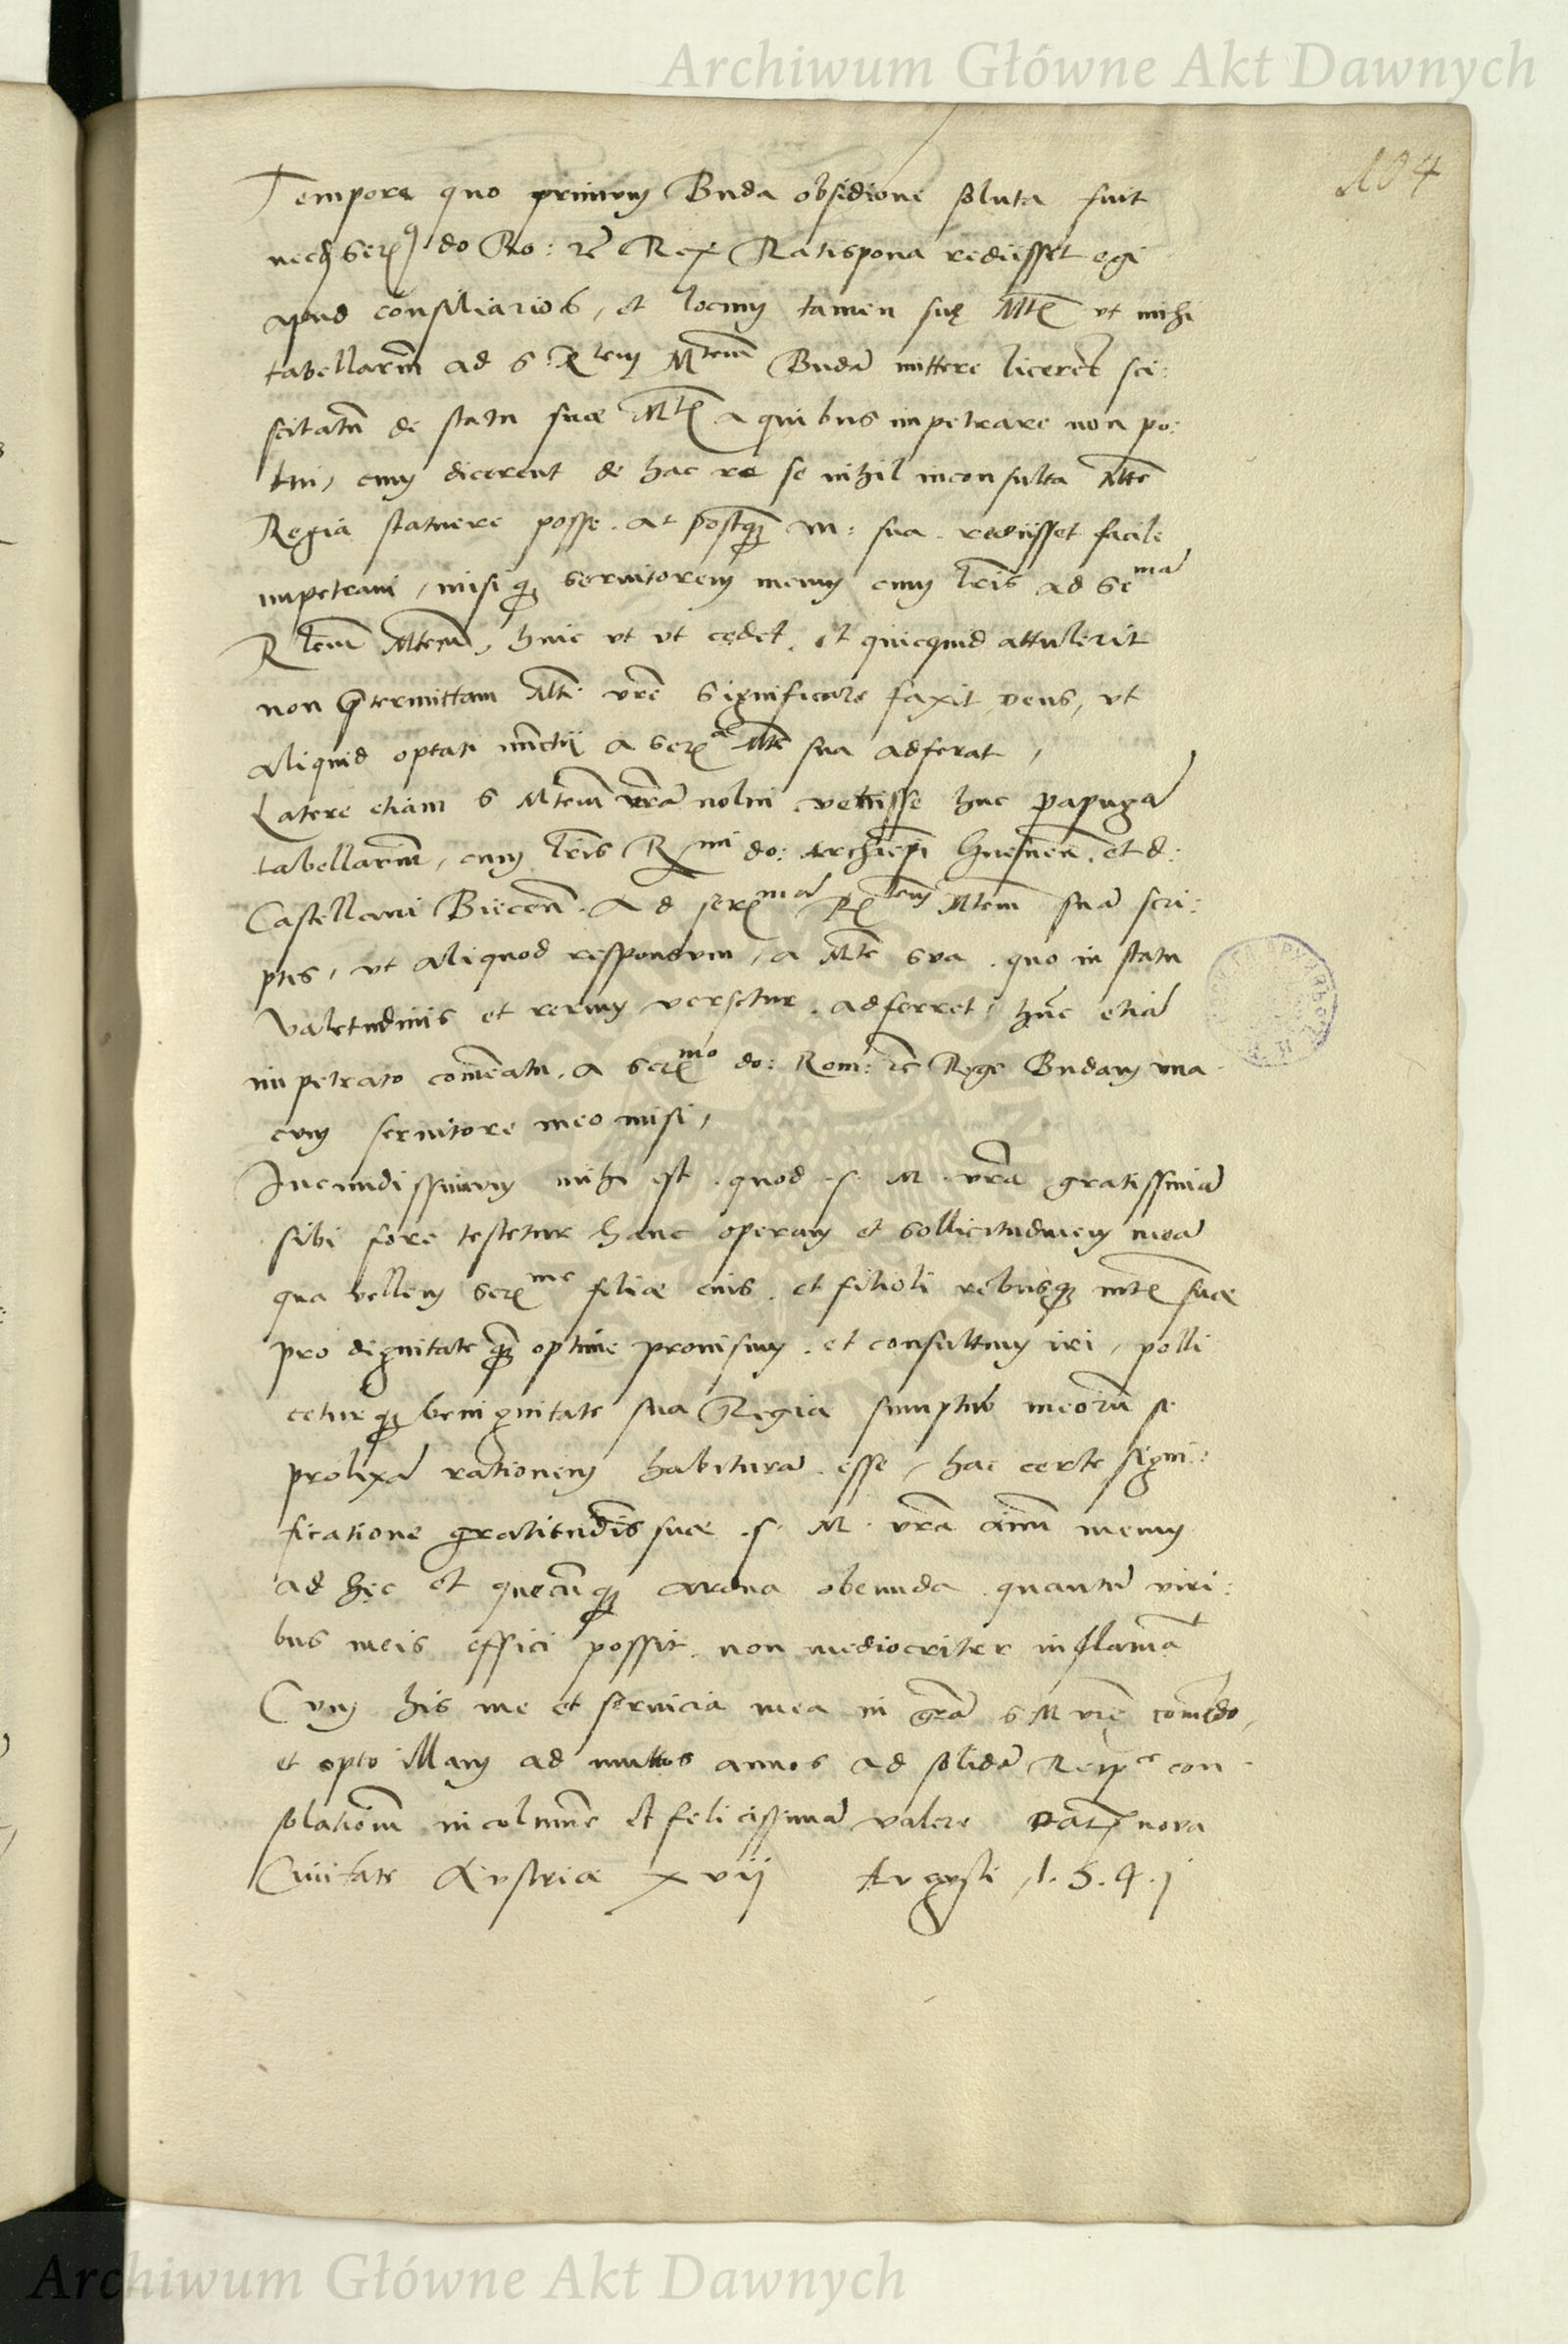 Archiwum Główne Akt Dawnych
104
Tempore quo primum Buda obsidione soluta fuit
necq̃ Serᵐ⁹ do Ro: rē Rex Ratispona rediisset egi
apud consiliarios, et locum tamen suę Mtẽ vt mihi
tabellariũ ad S. Rtem Mtem Budã mittere liceret sci:
scitatũ de statu suae Mtẽ a quibus impetrare non po:
tui, cum dicerent de hac re se nihil inconsulta Mtte
Regia statuere posse. at postq̃ m: sua rediisset facile
impetraui, misiq; seruitorem meum cum lris ad Semã
Rtem Mtem, huic vt vt cedet. et quicquid attulerit
non p̃termittam Mti vrẽ significare faxit deus, vt
aliquid optati nuncii a Serᵃ Mte sua adferat,
Latere etiam S Mtem vrã nolui venisse huc papugã
tabellariũ, cum lris Rmi do: Archiepi Gnesnen. et d:
Castellani Biecen. ad serᵐᵃ Rtem Mtem suã scri:
ptis, vt aliquod responsum, a Mte sua quo in statu
valetudinis et rerum versetur. adferret, hũc etiã
impetrato comeatu. a serᵐᵒ do: Rom: rẽ Rege Budam vna
cum seruitore meo misi,
Iucundissimum mihi est. quod. S. M. vrã gratissimã
sibi fore testetur hanc operam et sollicitudinem meã
qua vellem serᵐᵉ filiae eius. et filioli rebusq; mtẽ suae
pro dignitate q̃ optime prouisum. et consultum iri, polli
ceturq; benignitate sua Regia sumptuũ meorũ se
prolixã rationem habiturã esse, hac certe signi:
ficatione gratitudinis suae. S. M. vrã aĩm meum
ad hęc et quęcũq; ardua obeunda quantũ viri:
bus meis effici possit. non mediocriter inflamã
Cum his me et seruicia mea in grã S M vrę com̃edo,
et opto illam ad multos annos ad solidã Reipᶜ con
solationẽ incolumẽ et felicissimã valere Datẽ noua
Ciuitate Austriae xvij Augusti 1.5.4.j
Archiwum Główne Akt Dawnych